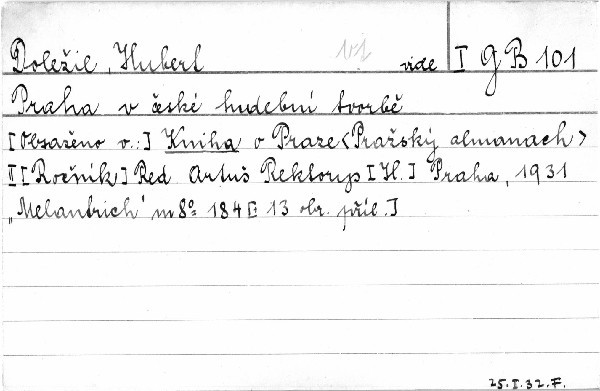 Doležil, Hubert vide I g B 101
Praha v české hudební tvorbě
[Obsaženo v.:] Kniha o Praze <Pražský almanach>
II [Ročník] Red Artuš Rektorys [Il.] Praha, 1931
„Melantrich" m 8º 184 [ 13 obr. příl.]
25.I.32.F.